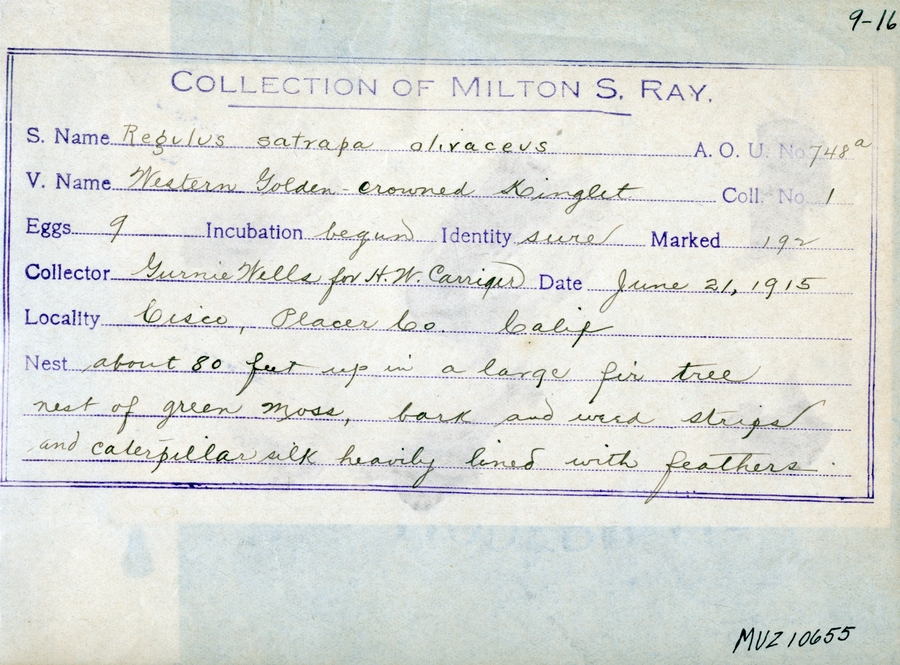 9-16
COLLECTION OF MILTON S. RAY.
S. Name Regulus satrapa olivaceus A. O. U. No. 748a
V. Name Western Golden-crowned Kinglet Coll. No. 1
Eggs 9 Incubation begun Identity sure Marked 192
Collector Gurnie Wells for H.W. Carriger Date June 21, 1915
Locality Cisco, Placer Co. Calif
Nest about 80 feet up in a large fir tree
nest of green moss, bark and weed strips
and caterpillar silk heavily lined with feathers.
MVZ 10655